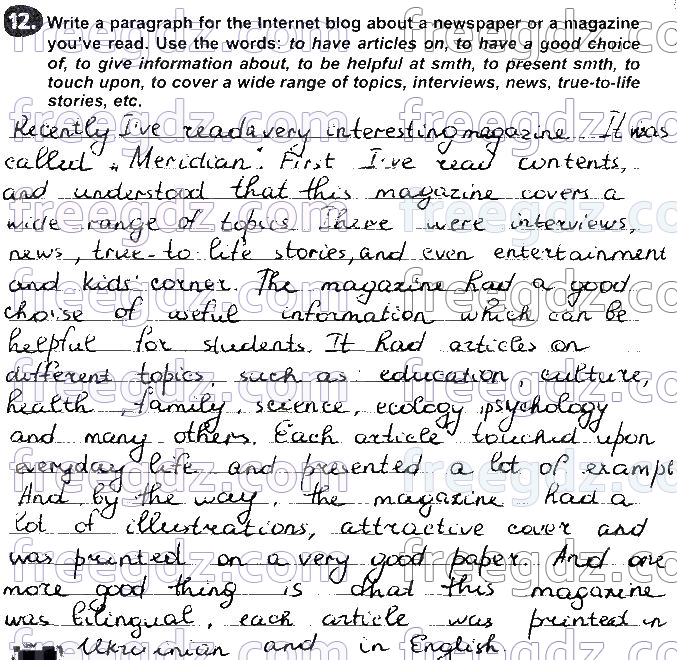 12. Write a paragraph for the Internet blog about a newspaper or a magazine
you've read. Use the words: to have articles on, to have a good choice
of, to give information about, to be helpful at smth, to present smth, to
touch upon, to cover a wide range of topics, interviews, news, true-to-life
stories, etc.
Recently I've read a very interesting magazine. It was
called „Meridian". First I've read contents,
and understood that this magazine covers a
wide range of topics. There were interviews,
news, true-to life stories, and even entertainment
and kids' corner. The magazine had a good
choise of useful information which can be
helpful for students. It had articles on
different topics, such as: education, culture,
health, family, science, ecology, psychology
and many others. Each article touched upon
everyday life and presented a lot of exampl
And by the way, the magazine had a
lot of illustrations, attractive cover and
was printed on a very good paper. And one
more good thing is that this magazine
was bilingual, each article was printed in
Ukrainian and in English
freegdz.com